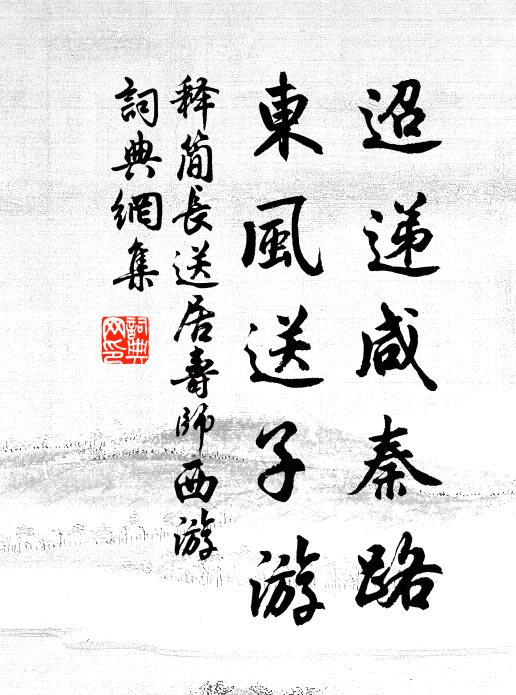 迢递咸秦路
東風送子游
释簡長送居壽師西游
詞典網集
詞典网印